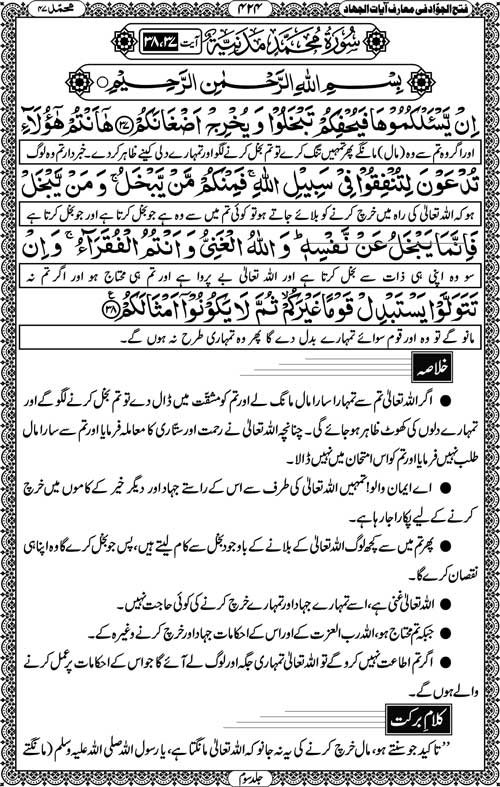 فتح الجوّاد فی معارف آیات الجھاد ۴۲۴ محمّد ۴۷
سُوْرَۃُ مُحَمَّدٍ مَدَنِیَّۃٌ آیت ۳۷، ۳۸
بِسْمِ اللهِ الرَّحْمٰنِ الرَّحِيْمِ
اِنْ يَّسْئَلْكُمُوْهَا فَيُحْفِكُمْ تَبْخَلُوْا وَيُخْرِجْ اَضْغَانَكُمْ ﴿۳۷﴾ هٰٓاَنْتُمْ هٰٓؤُلَآءِ
اور اگر وہ تم سے وہ (مال) مانگے پھر تمہیں تنگ کرے تو تم بخل کرنے لگو اور تمہارے دلی کینے ظاہر کر دے۔ خبردار تم وہ لوگ
تُدْعَوْنَ لِتُنْفِقُوْا فِيْ سَبِيْلِ اللهِ ۚ فَمِنْكُمْ مَّنْ يَّبْخَلُ ۚ وَمَنْ يَّبْخَلْ
ہو کہ اللہ تعالیٰ کی راہ میں خرچ کرنے کو بلائے جاتے ہو تو کوئی تم میں سے وہ ہے جو بخل کرتا ہے اور جو بخل کرتا ہے
فَاِنَّمَا يَبْخَلُ عَنْ نَّفْسِهٖ ؕ وَاللهُ الْغَنِيُّ وَاَنْتُمُ الْفُقَرَآءُ ۚ وَاِنْ
سو وہ اپنی ہی ذات سے بخل کرتا ہے اور اللہ تعالیٰ بے پروا ہے اور تم ہی محتاج ہو اور اگر تم نہ
تَتَوَلَّوْا يَسْتَبْدِلْ قَوْمًا غَيْرَكُمْ ۙ ثُمَّ لَا يَكُوْنُوْٓا اَمْثَالَكُمْ ﴿۳۸﴾
مانو گے تو وہ اور قوم سوائے تمہارے بدل دے گا پھر وہ تمہاری طرح نہ ہوں گے۔
خلاصہ
● اگر اللہ تعالیٰ تم سے تمہارا سارا مال مانگ لے اور تم کو مشقت میں ڈال دے تو تم بخل کرنے لگو گے اور
تمہارے دلوں کی کھوٹ ظاہر ہو جائے گی۔ چنانچہ اللہ تعالیٰ نے رحمت اور ستاری کا معاملہ فرمایا اور تم سے سارا مال
طلب نہیں فرمایا اور تم کو اس امتحان میں نہیں ڈالا۔
● اے ایمان والو! تمہیں اللہ تعالیٰ کی طرف سے اس کے راستے جہاد اور دیگر خیر کے کاموں میں خرچ
کرنے کے لیے پکارا جا رہا ہے۔
● پھر تم میں سے کچھ لوگ اللہ تعالیٰ کے بلانے کے باوجود بخل سے کام لیتے ہیں، پس جو بخل کرے گا وہ اپنا ہی
نقصان کرے گا۔
● اللہ تعالیٰ غنی ہے، اسے تمہارے جہاد اور تمہارے خرچ کرنے کی کوئی حاجت نہیں۔
● جبکہ تم محتاج ہو، اللہ رب العزت کے اور اس کے احکامات جہاد اور خرچ کرنے وغیرہ کے۔
● اگر تم اطاعت نہیں کرو گے تو اللہ تعالیٰ تمہاری جگہ اور لوگ لے آئے گا جو اس کے احکامات پر عمل کرنے
والے ہوں گے۔
کلام برکت
’’تاکید جو سنتے ہو، مال خرچ کرنے کی یہ نہ جانو کہ اللہ تعالیٰ مانگتا ہے، یا رسول اللہ صلی اللہ علیہ وسلم (مانگتے
جلد سوم